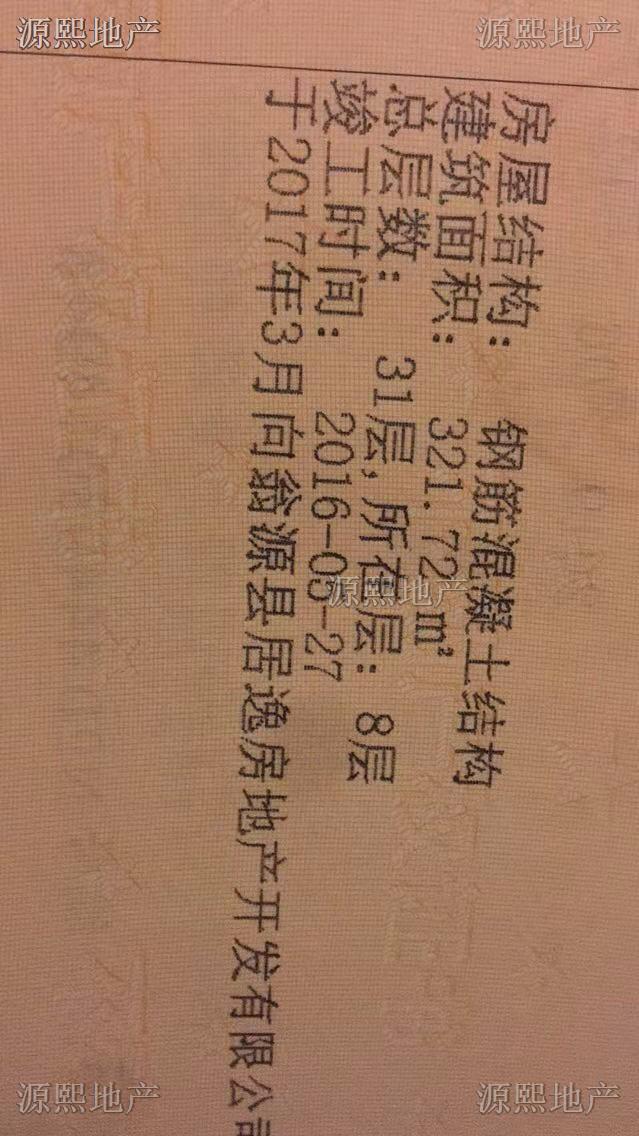 源熙地产 源熙地产
房屋结构: 钢筋混凝土结构
建筑面积: 321.72㎡
总层数: 31层, 所在层: 8层
竣工时间: 2016-05-27
于2017年3月向翁源县居逸房地产开发有限公司
源熙地产
源熙地产 源熙地产